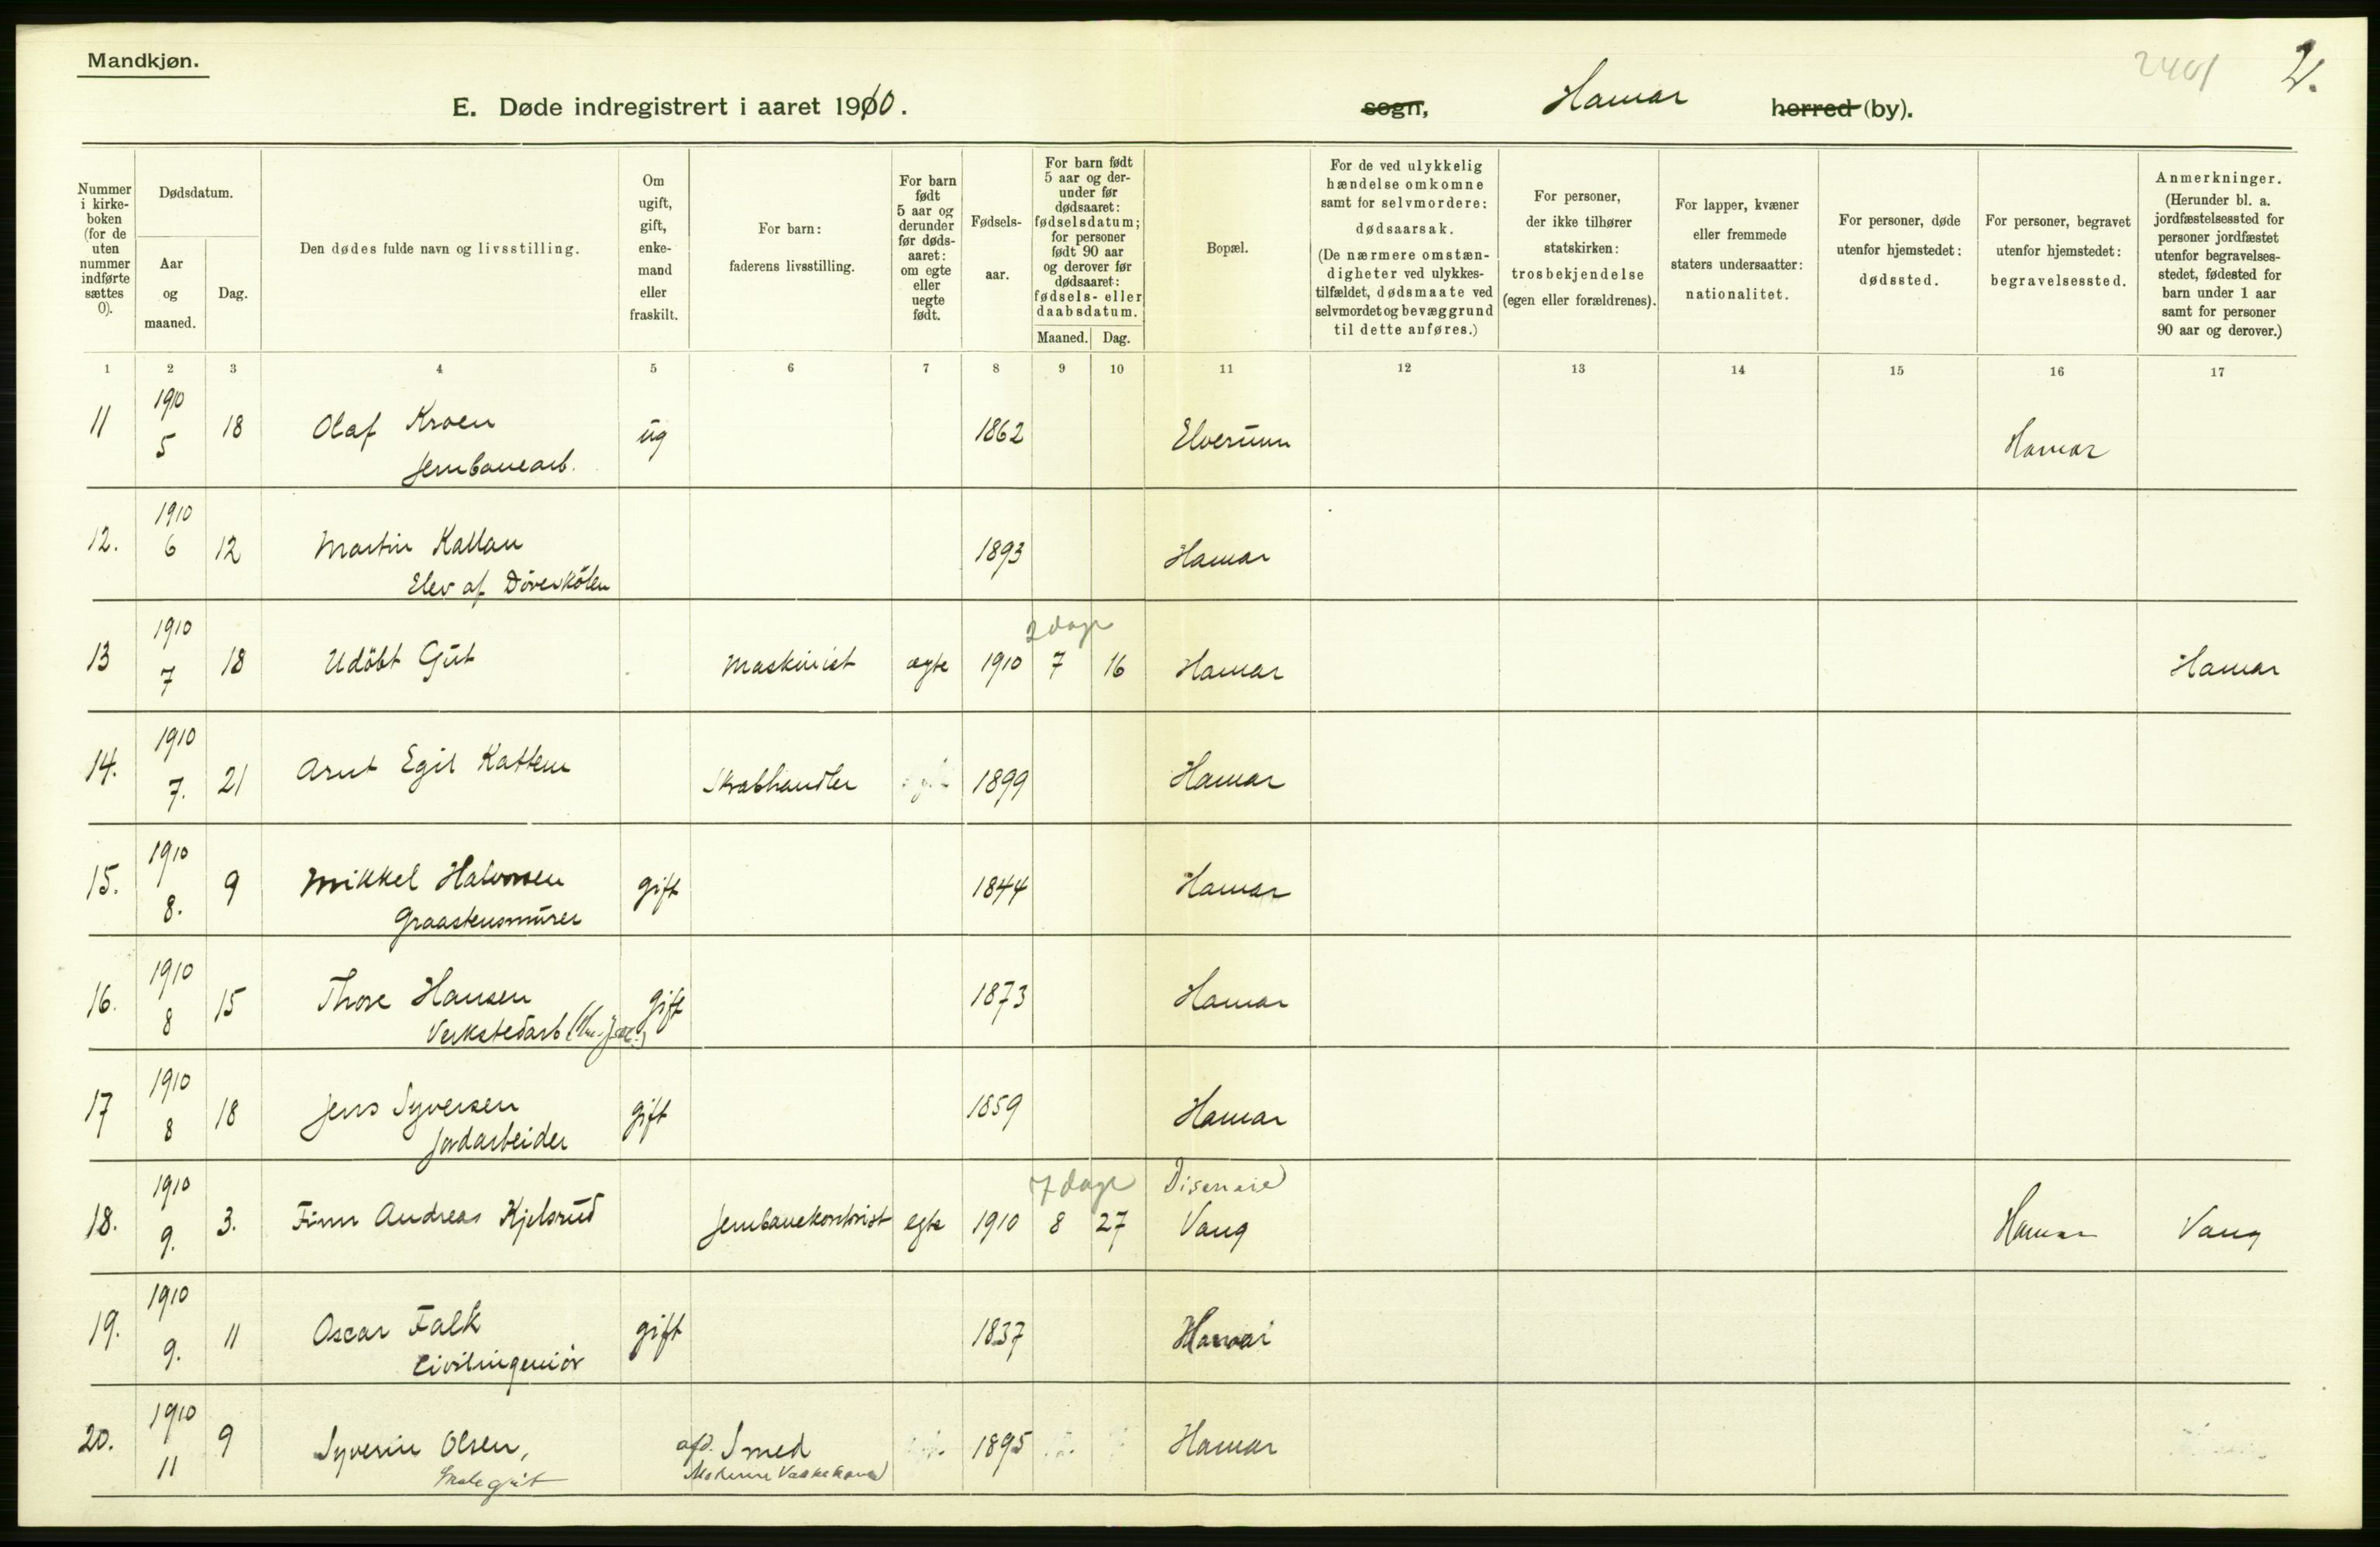 Mandkjøn.
2401
2.
E. Døde indregistrert i aaret 1910.
sogn, Hamar herred (by).
Nummer i kirke-boken (for de uten nummer indførte sættes 0).
Dødsdatum.
Aar og maaned.
Dag.
Den dødes fulde navn og livsstilling.
Om ugift, gift, enke-mand eller fraskilt.
For barn: faderens livsstilling.
For barn født 5 aar og derunder før døds-aaret: om egte eller uegte født.
Fødsels-aar.
For barn født 5 aar og der-under før dødsaaret: fødselsdatum; for personer født 90 aar og derover før dødsaaret: fødsels- eller daabsdatum.
Maaned. Dag.
Bopæl.
For de ved ulykkelig hændelse omkomne samt for selvmordere: dødsaarsak. (De nærmere omstæn-digheter ved ulykkes-tilfældet, dødsmaate ved selvmordet og bevæggrund til dette anføres.)
For personer, der ikke tilhører statskirken: trosbekjendelse (egen eller forældrenes).
For lapper, kvæner eller fremmede staters undersaatter: nationalitet.
For personer, døde utenfor hjemstedet: dødssted.
For personer, begravet utenfor hjemstedet: begravelsessted.
Anmerkninger. (Herunder bl. a. jordfæstelsessted for personer jordfæstet utenfor begravelses-stedet, fødested for barn under 1 aar samt for personer 90 aar og derover.)
1 2 3 4 5 6 7 8 9 10 11 12 13 14 15 16 17
11 1910 5 18 Olaf Kroen ug 1862 Elverum Hamar
Jernbanearb.
12. 1910 6 12 Martin Kallau 1893 Hamar
Elev af
13 1910 7 18 Udöbt Gut Maskinist ægte 1910 7 16 Hamar Hamar
2 dage
14. 1910 7. 21 Arnt Egil Kattem Skrabhandler 1899 Hamar
15. 1910 8. 9 Mikkel Halvorsen gift 1844 Hamar
Graastensmurer
16. 1910 8 15 Thore Hansen gift 1873 Hamar
Verkstedarb
17 1910 8 18 Jens Syversen gift 1859 Hamar
Jordarbeider
7 dage Disenaie
18. 1910 9. 3. Finn Andreas Kjelsrud Jernbanekontorist egte 1910 8 27 Vang Hamar Vang
19. 1910 9. 11 Oscar Falk gift 1837 Hamar
Civilingeniör
20. 1910 11 9 Syverin Olsen, afd. Smed 1895 Hamar
Skolegut Moderen Vaskekone